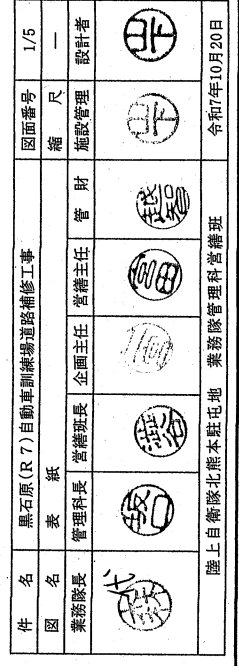 件名 黒石原(R7)自動車訓練場道路補修工事 図面番号 1/5
図名 表紙 縮尺 ―
業務隊長 管理科長 営繕班長 企画主任 営繕主任 管財 施設管理 設計者
代 澁谷 宮田 越智 山下 山下
陸上自衛隊北熊本駐屯地 業務隊管理科営繕班 令和7年10月20日